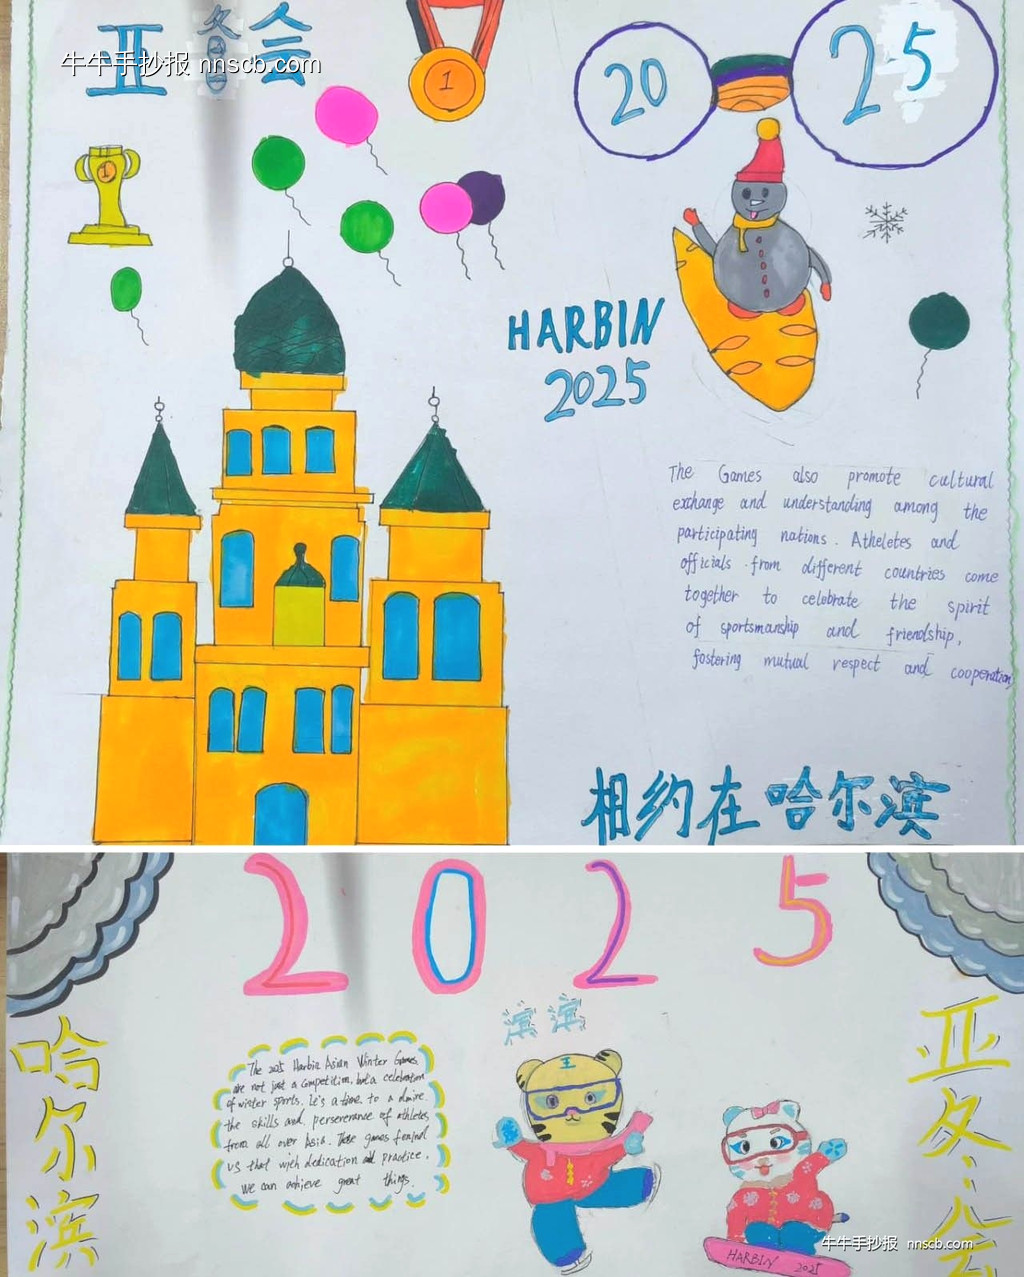 亚冬会
牛牛手抄报 nnscb.com
1
1
20
25
HARBIN
2025
The Games also promote cultural
exchange and understanding among the
participating nations. Atheletes and
officials from different countries come
together to celebrate the spirit
of sportsmanship and friendship,
fostering mutual respect and cooperation
相约在哈尔滨
2025
哈尔滨
滨滨
亚冬会
The 2025 Harbin Asian Winter Games
are not just a competition, but a celebration
of winter sports. It's a time to admire
the skills and perseverance of athletes
from all over Asia. These games remind
us that with dedication and practice,
we can achieve great things.
王
牛牛手抄报 nnscb.com
HARBIN 2025